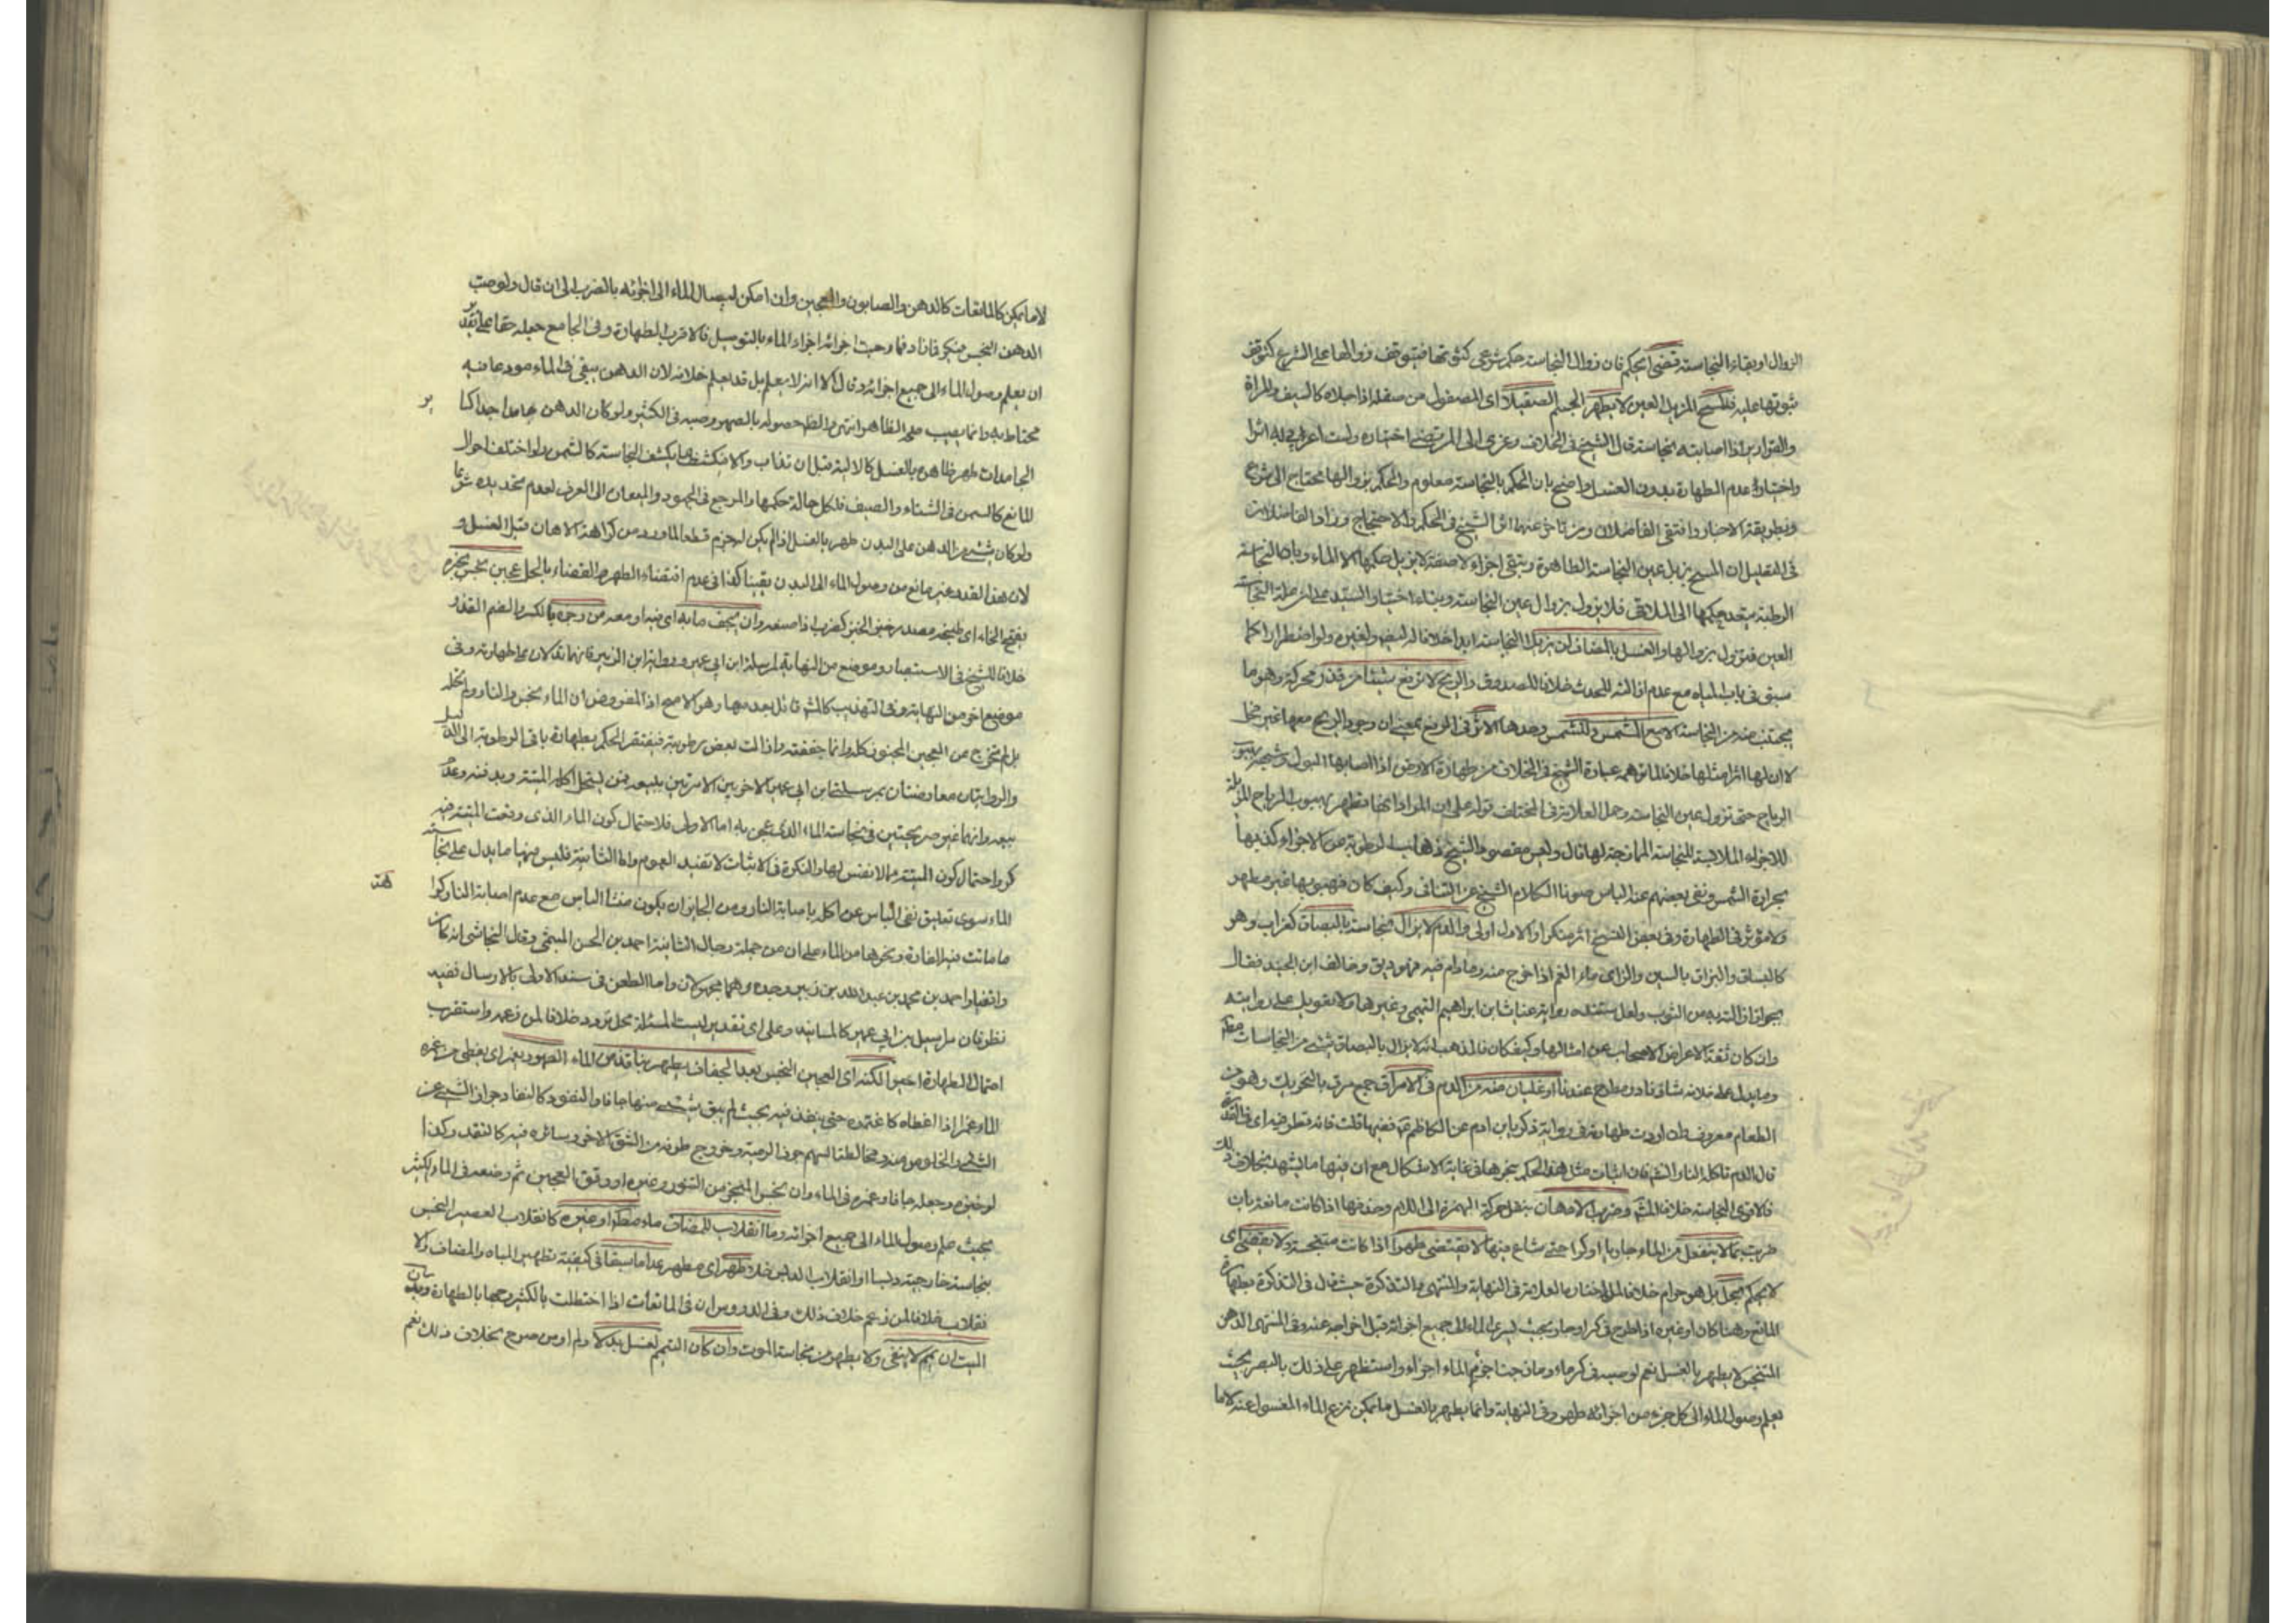 الزوال او بقاء النجاسة قضى بحكم فان زوال النجاسة حكم شرعي كثبوتها فيتوقف زوالها على الشرع كتوقف
ثبوتها عليه فالمسح المزيل العين لا يطهر الجسم الصقيل اي المصقول من صقله اذا جلاه كالسيف والمراة
والقوارير اذا اصابته نجاسة قال الشيخ في الخلاف وعزى الى المرتضى اختياره ولست اعرف به اثرا
واختياره عدم الطهارة بدون الغسل واضح بان الحكم بالنجاسة معلوم والحكم بزوالها محتاج الى شرع
وبطريقة الاحتياط واقتفى الفاضلان ومن تاخر عنهما اثر الشيخ في الحكم والاحتجاج وزاد الفاضلان
في التعليل ان المسح يزيل عين النجاسة الظاهرة وتبقى اجزاء لاصقة لا يزيل حكمها الا الماء وبان النجاسة
الرطبة يتعدى حكمها الى الملاقى فلا يزول بزوال عين النجاسة وبناء اختيار السيد على ان علة النجاسة
العين فتزول بزوالها والغسل بالمضاف لن يزيل النجاسة ابدا خلافا له لبعض ولغيره ولو اضطرارا كما
سبق في باب المياه مع عدم ازالته للحدث خلافا للصدوق والريح لا ترفع شيئا من قذر محركة وهو ما
يجتنب منه من النجاسة الا مع الشمس وللشمس وحدها الاثر في الرفع بمعنى ان وجود الريح معها غير مخل
لا ان لها اثرا مثلها خلافا لما توهمه عبارة الشيخ في الخلاف من طهارة الارض اذا اصابها البول وتجفيف بهبوب
الرياح حتى تزول عين النجاسة وحمل العلامة في المختلف قوله على ان المراد انها تطهر بهبوب الرياح المزيلة
للاجزاء الملاقية للنجاسة الممازجة لها قال وليس مقصود الشيخ ذهاب الرطوبة من الاجزاء كذهابها
بحرارة الشمس ونفى بعضهم عنه الباس صونا لكلام الشيخ عن التنافي وكيف كان فهبوبها غير مطهر
ولا مؤثر في الطهارة وفي بعض النسخ اثر منكرا والاول اولى والدم لا يزال نجاسة بالبصاق كغراب وهو
كالبساق والبزاق بالسين والزاي ماء الفم اذا خرج منه وما دام فيه فهو ريق وخالف ابن الجنيد فقال
بجواز ازالته به من الثوب ولعل مستنده رواية غياث بن ابراهيم التميمي وغيرها ولا تعويل على روايته
وان كان ثقة لاعراض الاصحاب عن امثالها وكيف كان فالمذهب انه لا يزال بالبصاق شيء من النجاسات
وما يدل على خلافه شاذ نادر مطرح عندنا او غليان منه من الدم في الامراق جمع مرق بالتحريك وهو من
الطعام معروف وان اوردت طهارته في رواية زكريا بن ادم عن الكاظم ع ففيها قلت فانه قطر فيه اي في القدر
قال الدم تاكله النار انشاء الله فان اثبات مثل هذا الحكم بخبرها في غاية الاشكال مع ان فيها ما يشهد بخلاف ذلك
فالاقوى النجاسة خلافا للشيخ وضرب الادهان بنقل حركة الهمزة الى اللام وحذفها اذا كانت مائعة بان
ضربت بما لا ينفعل من الماء جاريا او كرا حتى شاع فيها لا يقتضي طهرا اذا كانت متنجسة ولا يقتضي اي
لا يحكم بحل بل هو حرام خلافا لما اختاره العلامة في النهاية والمنتهى والتذكرة حيث قال في التذكرة بطهارة
المائع دهنا كان او غيره اذا طرح في كر او جار بحيث يسري الماء الى جميع اجزائه قبل اخراجه عنه وفي المنتهى الدهن
المتنجس لا يطهر بالغسل نعم لو صب في كر ماء ومازجت اجزاء الماء اجزاءه واستظهر على ذلك بالتصويل بحيث
يعلم وصول الماء الى كل جزء من اجزائه طهر وفي النهاية وانما يطهر بالغسل ما يمكن نزع الماء المغسول عنه لا ما
لا ما يمكن كالمائعات كالدهن والصابون والعجين وان امكن ايصال الماء الى اجزائه بالضرب الى ان قال ولو صب
الدهن النجس في كر فازاد فمازجت اجزائه اجزاء الماء بالتوصيل فالاقرب الطهارة وفي الجامع جعله حقا على تقدير
ان يعلم وصول الماء الى جميع اجزائه وقال الا انه لا يعلم بل قد يعلم خلافه لان الدهن يبقى في الماء مودعا فيه
محتاط به وانما يصيب على الظاهر انتهى والظ حصوله بالصهر وصبه في الكثير ولو كان الدهن جامدا جدا كبا
الجامدات طهر ظاهره بالغسل كالالية قبل ان تذاب والا فيكشط ما يكشف النجاسة كالشمع ولو اختلف احوال
المائع كالسمن في الشتاء والصيف فلكل حالة حكمها والمرجع في الجمود والميعان الى العرف لعدم تحديده شرعا
ولو كان شيء من الدهن على البدن طهر بالغسل اذا لم يكن له جرم قطعا لما ورد من كراهة الادهان قبل الغسل و
لان هذا القدر غير مانع من وصول الماء الى البدن يقينا كذا في عدم اقتضاء الطهر والقضاء بالحل عجين نجس بخبزه
بفتح الخاء اي طبخه مصدر خبز الخبز كضرب اذا صنعه وان يجف مابه اي فيه او معه من رجس بالكسر والضم القذر
خلافا للشيخ في الاستبصار وموضع من النهاية لمرسلة ابن ابي عمير ورواية ابن الزبير فانهما تدلان على طهارته وفي
موضع اخر من النهاية وفي التهذيب كالمش قائل بعدمها وهو الاصح اذ المفروض ان الماء نجس والنار لم تحله
بل لم تخرج من العجين المعجون كله وانما جففته وازالت بعض رطوبته فيفتقر الحكم بطهارة باقي الرطوبة الى الدليل
والروايتان معارضتان بمرسلتي ابن ابي عمير الاخريين الامرتين ببيعه ممن يستحل اكل الميتة وبدفنه وعدم
بيعه وانهما غير صريحتين في نجاسة الماء الذي عجن به اما الاولى فلاحتمال كون الماء الذي وقعت الميتة فيه
كر واحتمال كون الميتة مما لا نفس لها والنكرة في الاثبات لا تفيد العموم واما الثانية فليس فيها ما يدل على نجاسة
الماء سوى تعليق نفي الباس عن اكله باصابة النار ومن الجايز ان يكون منشا الباس مع عدم اصابة النار كراهة
ما ماتت فيه الفارة ونحوها من الماء على ان من جملة رجال الثانية احمد بن الحسن الميثمي وقال النجاشي انه كان
واقفيا واحمد بن محمد بن عبد الله بن زبير وجده وهما مجهولان واما الطعن في سند الاولى بالارسال ففيه
نظر فان مراسيل ابن ابي عمير كالمسانيد وعلى اي تقدير ليست المسئلة محل تردد خلافا لمن زعمه واستقرب
احتمال الطهارة اخيرا لكنه اي العجين النجس بعد الجفاف يطهر بنافذ من الماء الطهور يغمر اي يغطى من غمره
الماء غمرا اذا غطاه كاغتمره حتى ينفذ فيه بحيث لم يبق شيء منها جافا والنفوذ كالنفاذ جواز الشيء عن
الشيء والخلوص منه ومخالطة السهم جوف الرمية وخروج طرفه من الشق الاخر وسائره فيه كالنفذ وكذا
لو خبزه وجعله جافا وغمره في الماء وان نجس المنجى من التنور وغيره او رقق العجين ثم وضعه في الماء الكثير
بحيث علم وصول الماء الى جميع اجزائه وما انقلاب المضاف ماء مطلقا او غيره كانقلاب العصير النجس
بنجاسة خارجية دبسا او انقلاب الدبس خلا بطهر اي مطهر عدا ما سبقا في كيفية تطهير المياه والمضاف ولا
نقلاب خلافا لمن زعم خلاف ذلك وفي الدروس ان في المائعات اذا اختلطت بالكثير وجها بالطهارة وبدن
الميت ان يمم لا ينقى ولا يطهر من نجاسة الموت وان كان التيمم لغسل بدلا ولم ار من صرح بخلاف ذلك نعم